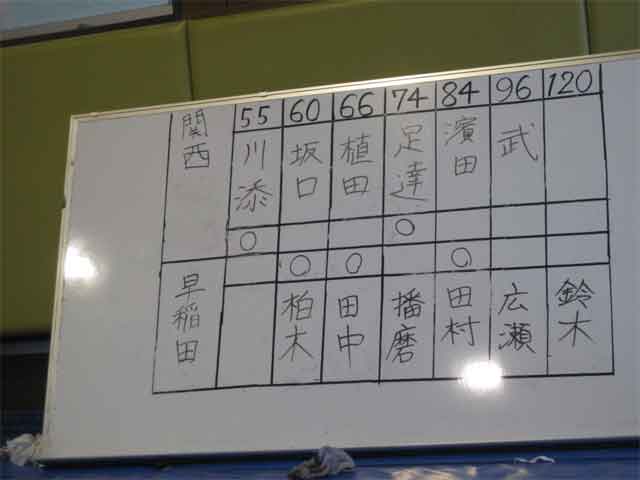 55 60 66 74 84 96 120
関西 川添 坂口 植田 足達 濱田 武
○ ○
○ ○ ○
早稲田 柏木 田中 播磨 田村 広瀬 鈴木